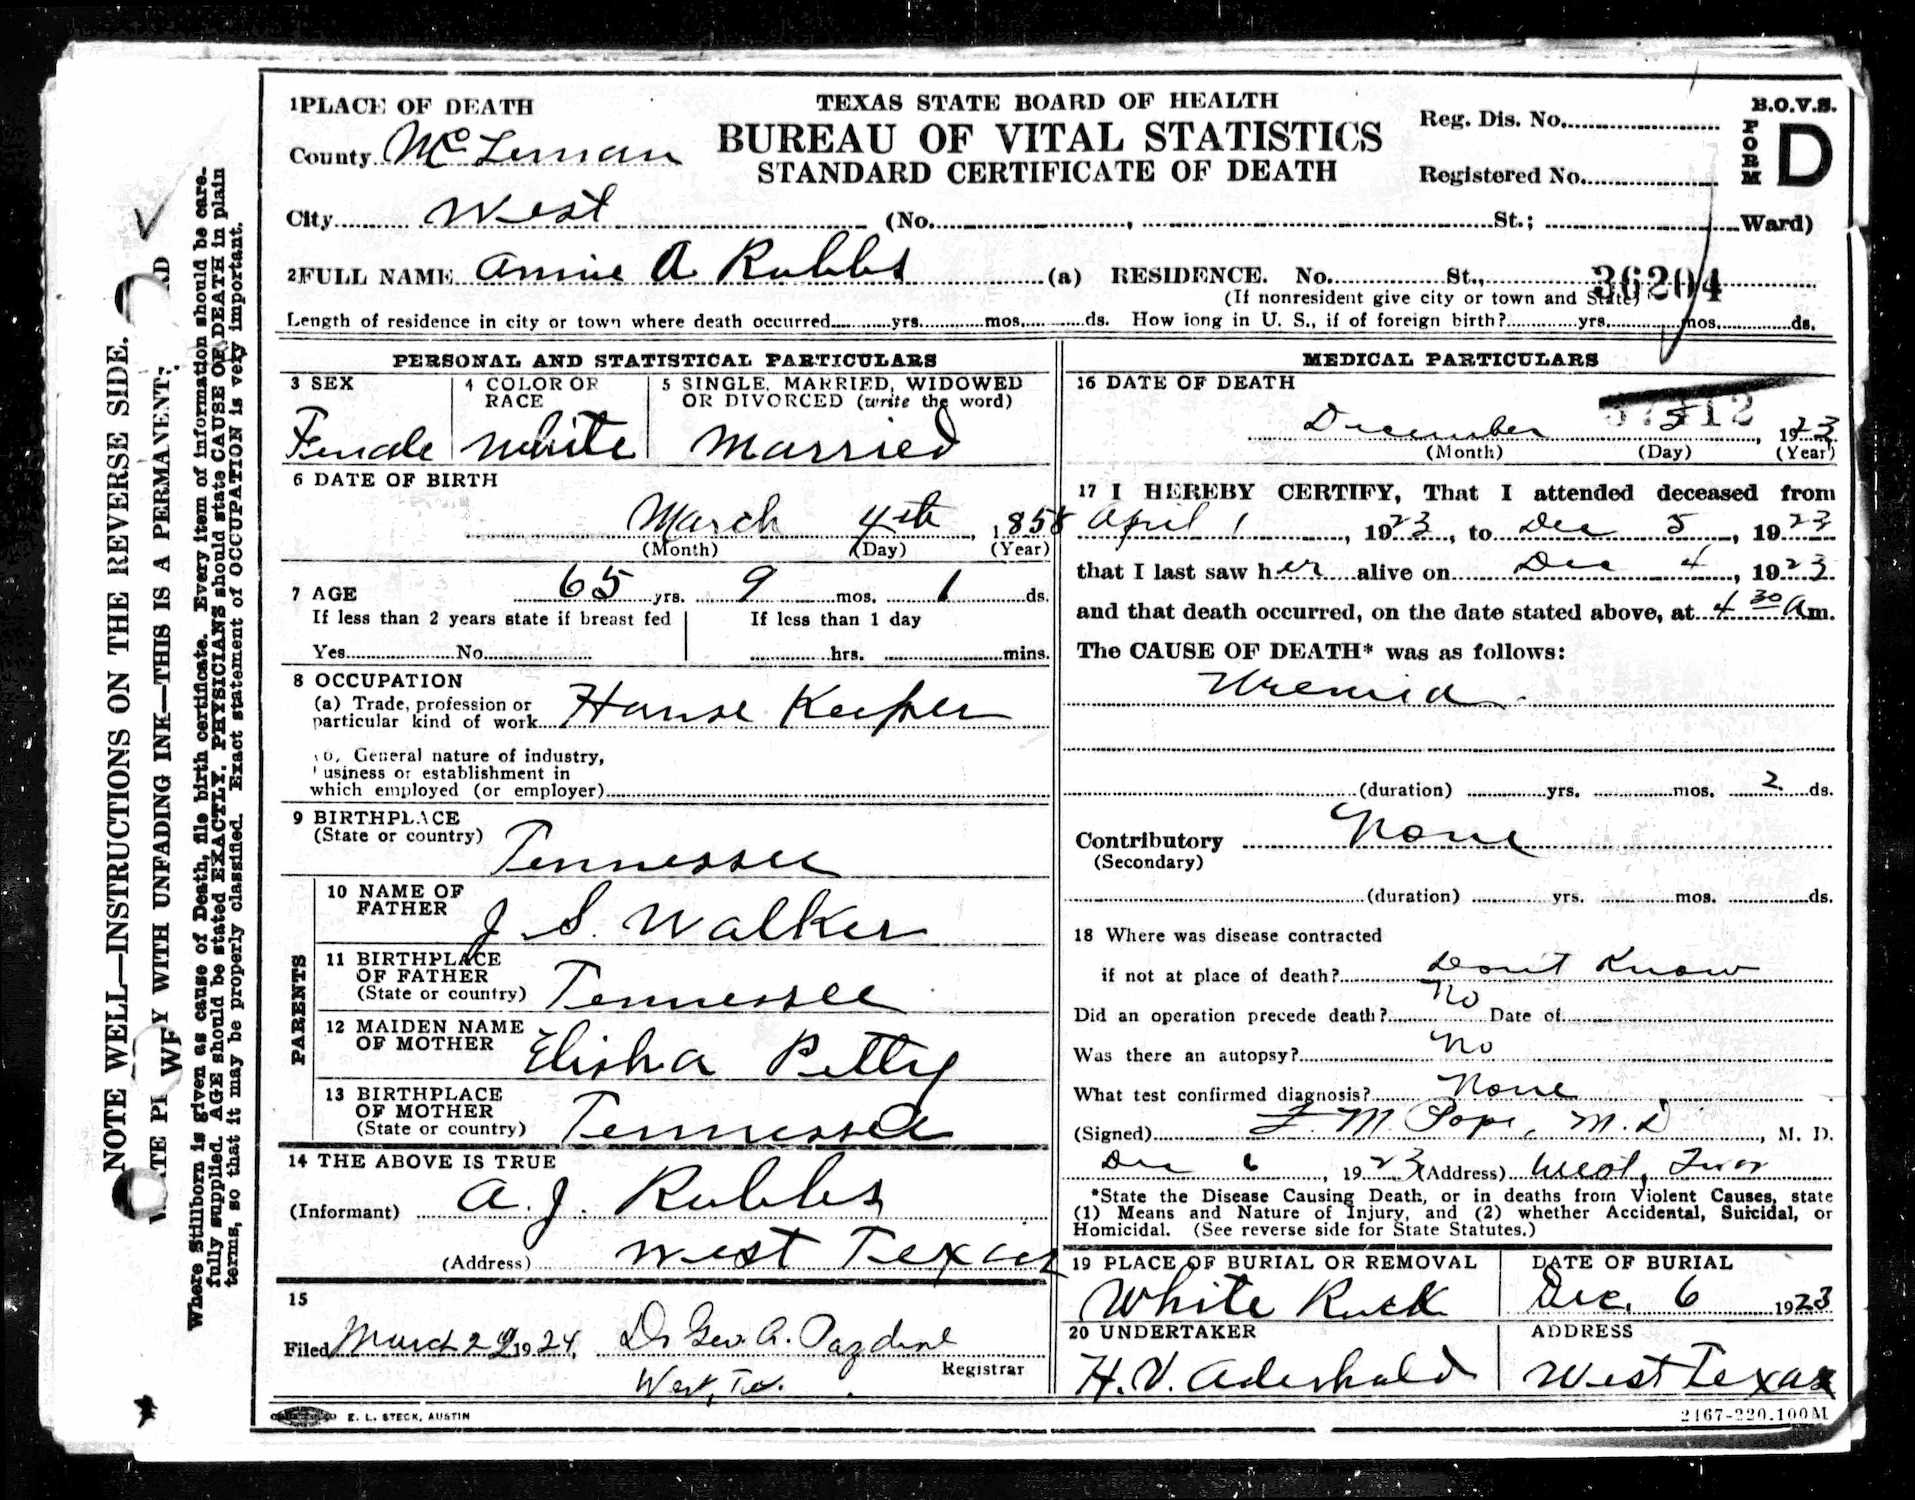 1 PLACE OF DEATH
County McLennan
City West (No. , St.; Ward)
TEXAS STATE BOARD OF HEALTH
BUREAU OF VITAL STATISTICS
STANDARD CERTIFICATE OF DEATH
Reg. Dis. No.
Registered No.
B.O.V.S.
FORM D
2 FULL NAME Annie A Rubbs (a) RESIDENCE. No. St.,
36204
(If nonresident give city or town and State)
Length of residence in city or town where death occurred yrs. mos. ds. How long in U. S., if of foreign birth? yrs. mos. ds.
PERSONAL AND STATISTICAL PARTICULARS
3 SEX
Female
4 COLOR OR RACE
White
5 SINGLE, MARRIED, WIDOWED
OR DIVORCED (write the word)
Married
6 DATE OF BIRTH
March 4th, 1858
(Month) (Day) (Year)
7 AGE 65 yrs. 9 mos. 1 ds.
If less than 2 years state if breast fed
Yes No
If less than 1 day
hrs. mins.
8 OCCUPATION
(a) Trade, profession or
particular kind of work House Keeper
General nature of industry,
usiness or establishment in
which employed (or employer)
9 BIRTHPLACE
(State or country) Tennessee
PARENTS
10 NAME OF
FATHER J. S. Walker
11 BIRTHPLACE
OF FATHER
(State or country) Tennessee
12 MAIDEN NAME
OF MOTHER Elisha Petty
13 BIRTHPLACE
OF MOTHER
(State or country) Tennessee
14 THE ABOVE IS TRUE
(Informant) A. J. Rubbs
(Address) West Texas
15
Filed March 29 1924, Dr Geo A. Pazdral
Registrar
West, Tex.
E. L. STECK, AUSTIN
MEDICAL PARTICULARS
16 DATE OF DEATH
37312
December 5, 1923
(Month) (Day) (Year)
17 I HEREBY CERTIFY, That I attended deceased from
April 1, 1923, to Dec 5, 1923
that I last saw her alive on Dec 4, 1923
and that death occurred, on the date stated above, at 4 30 Am.
The CAUSE OF DEATH* was as follows:
Uremia
(duration) yrs. mos. 2 ds.
Contributory None
(Secondary)
(duration) yrs. mos. ds.
18 Where was disease contracted
if not at place of death? Dont Know
Did an operation precede death? No Date of
Was there an autopsy? No
What test confirmed diagnosis? None
(Signed) F. M. Pope, M. D, M. D.
Dec 6, 1923 (Address) West, Texas
*State the Disease Causing Death, or in deaths from Violent Causes, state
(1) Means and Nature of Injury, and (2) whether Accidental, Suicidal, or
Homicidal. (See reverse side for State Statutes.)
19 PLACE OF BURIAL OR REMOVAL
White Rock
DATE OF BURIAL
Dec. 6 1923
20 UNDERTAKER
H. V. Aderhold
ADDRESS
West Texas
2467-220.100M
NOTE WELL—INSTRUCTIONS ON THE REVERSE SIDE.
WITH UNFADING INK—THIS IS A PERMANENT
Where Stillborn is given as cause of Death, file birth certificate. Every item of information should be care-
fully supplied. AGE should be stated EXACTLY. PHYSICIANS should state CAUSE OF DEATH in plain
terms, so that it may be properly classified. Exact statement of OCCUPATION is very important.